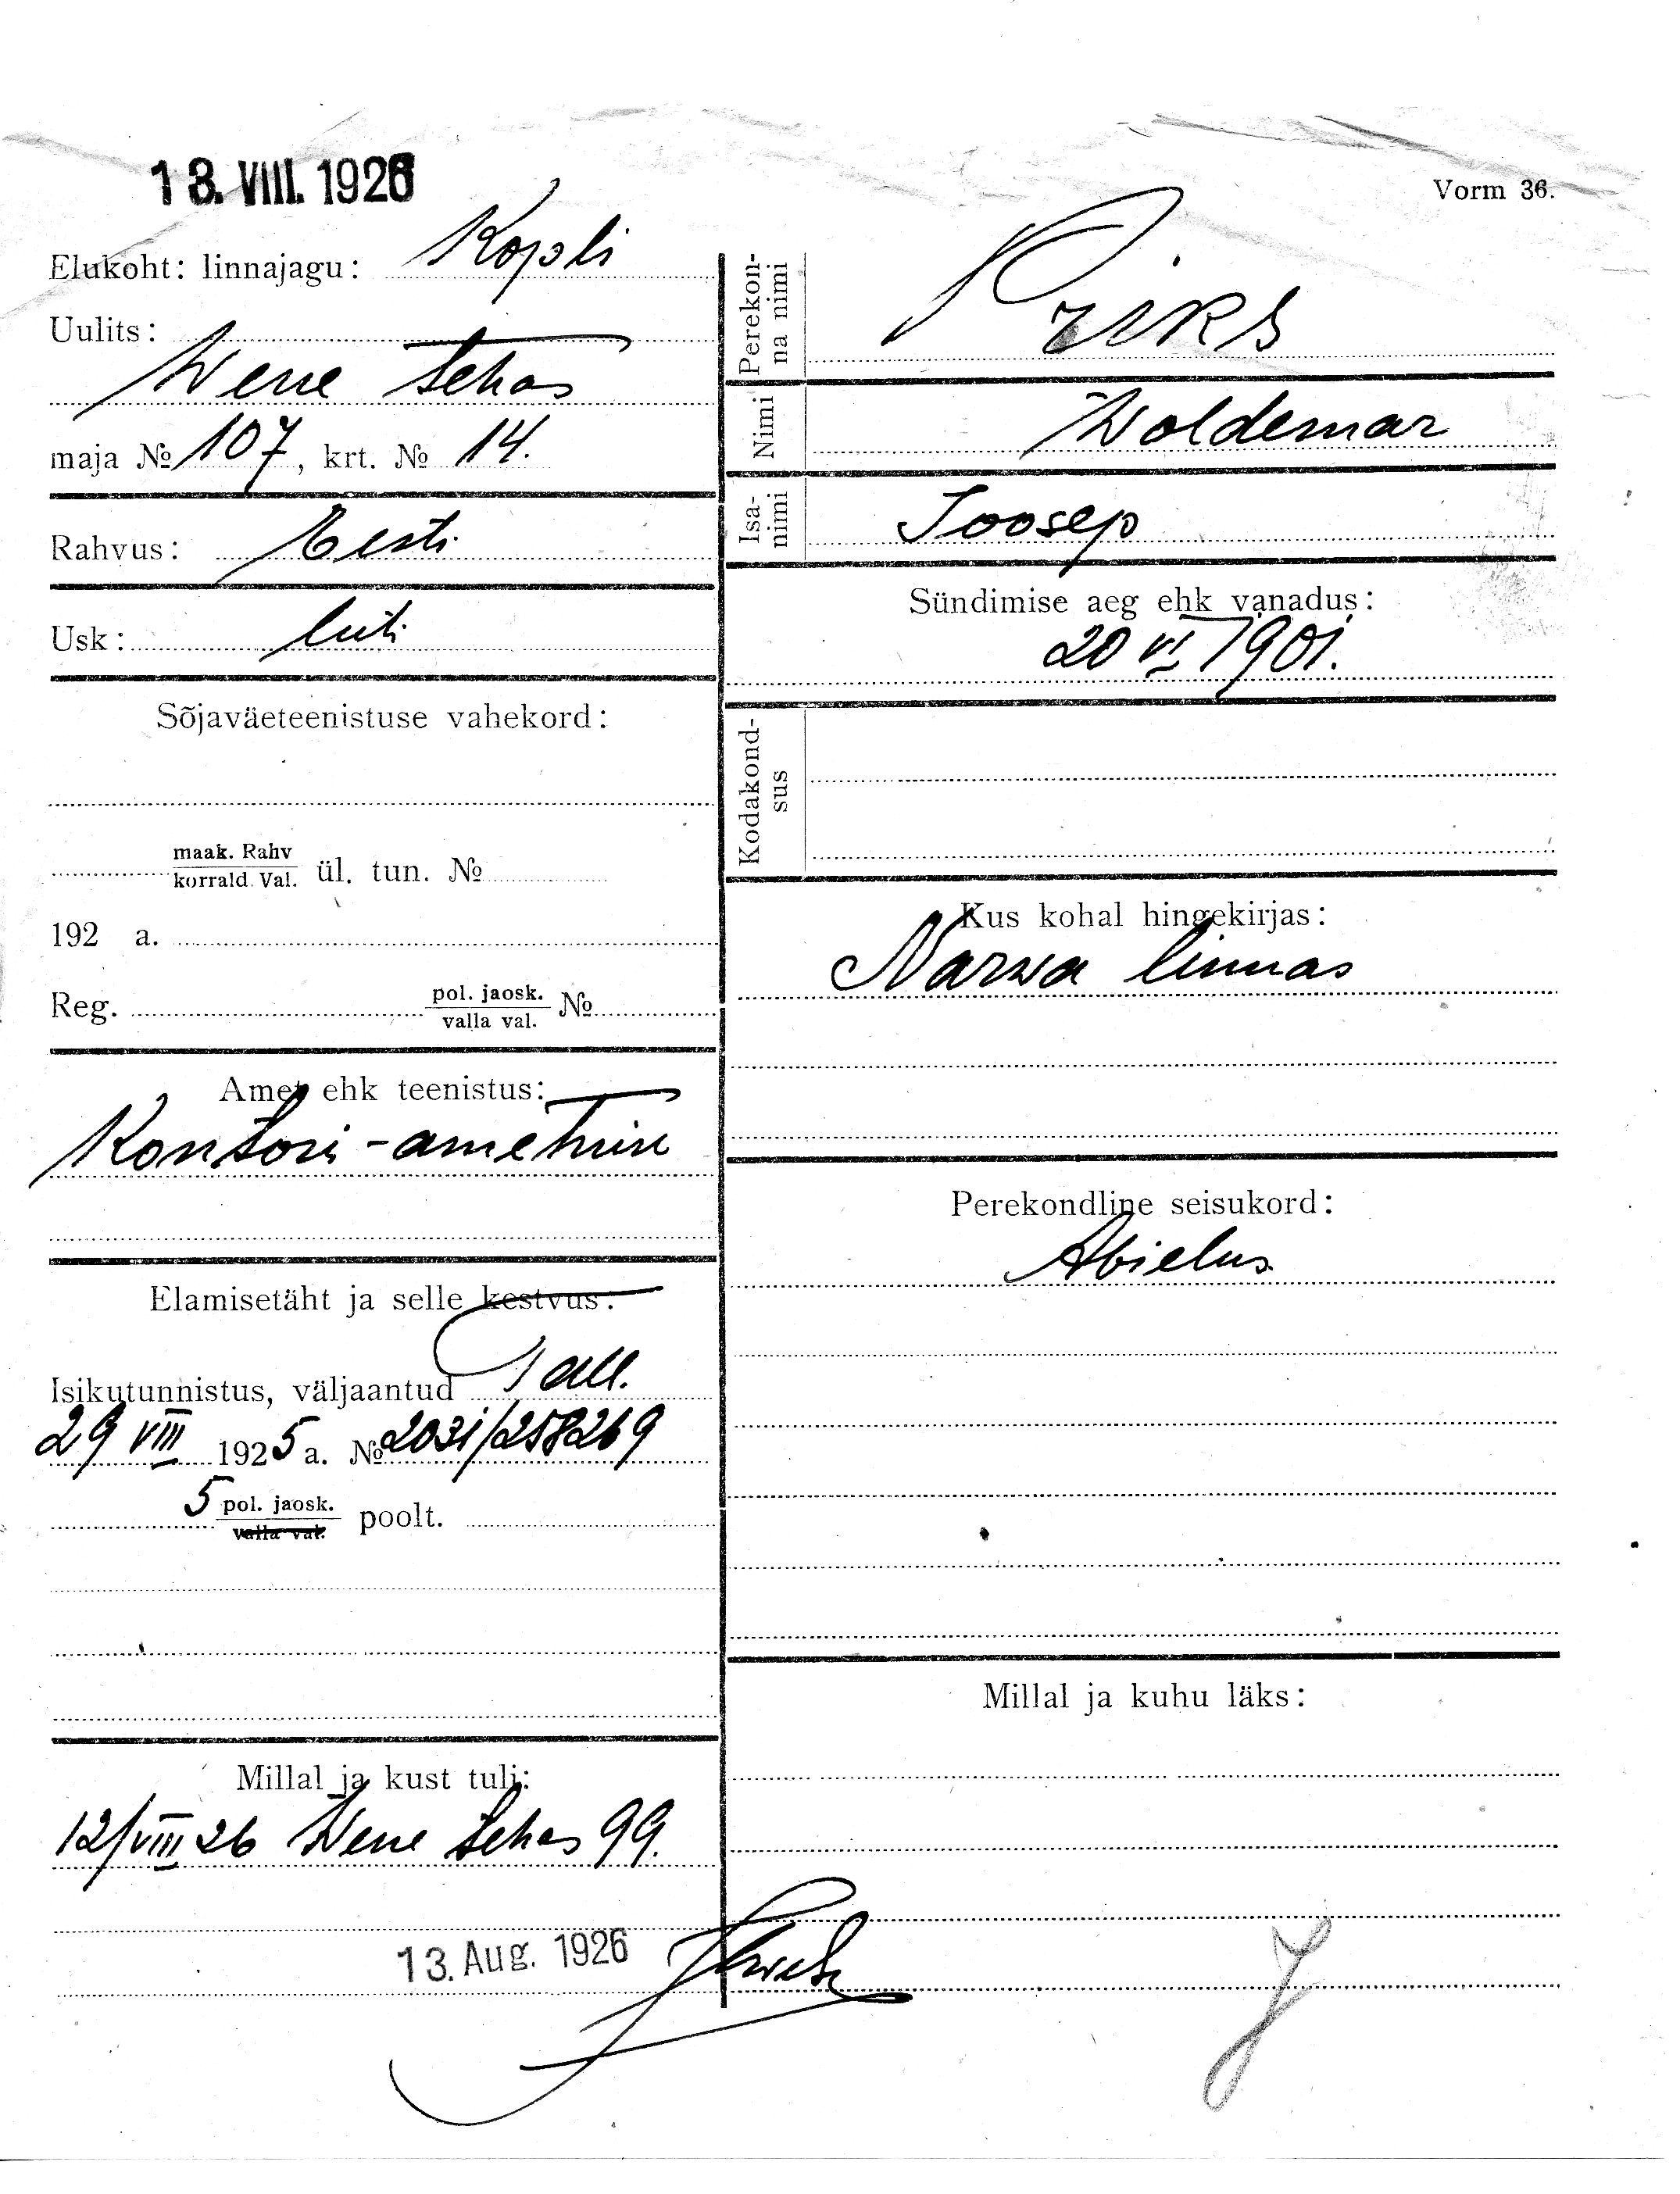 18. VIII. 1926
Vorm 36.
Elukoht: linnajagu: Kopli
Uulits:
Wene tehas
maja № 107, krt. № 14.
Rahvus: Eesti
Usk: luti
Sõjaväeteenistuse vahekord:
maak. Rahv
korrald. Val. ül. tun. №
192 a.
Reg. pol. jaosk. №
valla val.
Amet ehk teenistus:
Kontori-ametnik
Elamisetäht ja selle kestvus:
Isikutunnistus, väljaantud Tall.
29 VIII 1925 a. № 2031/258269
5 pol. jaosk. poolt.
valla val.
Millal ja kust tuli:
12/VIII 26 Wene tehas 99.
13. Aug. 1926
Perekonna nimi
Priks
Nimi Woldemar
Isanimi Joosep
Sündimise aeg ehk vanadus:
20 VI 1901.
Kodakondsus
Kus kohal hingekirjas:
Narwa linnas
Perekondline seisukord:
Abielus
Millal ja kuhu läks: